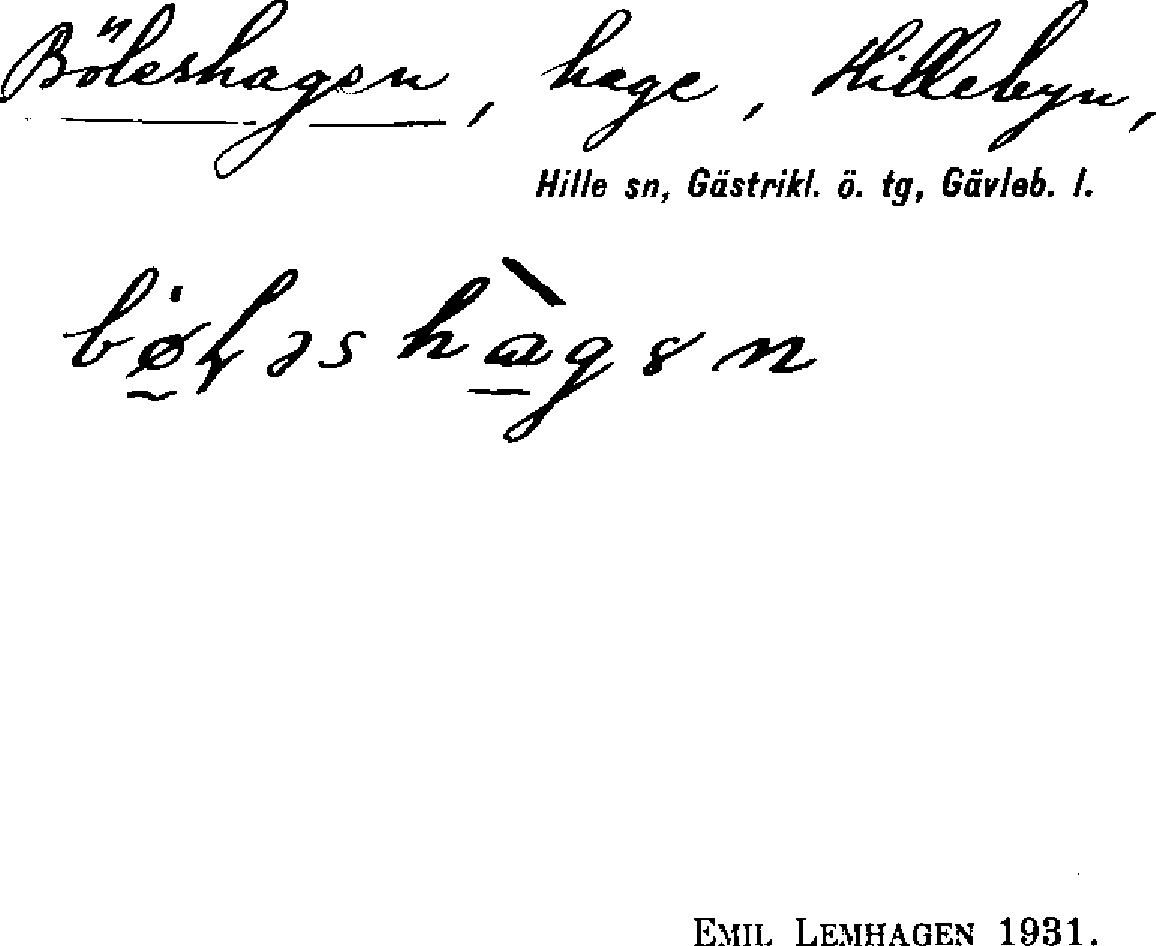 Böleshagen, hage, Hillebyn,
Hille sn, Gästrikl. ö. tg, Gävleb. l.
EMIL LEMHAGEN 1931.